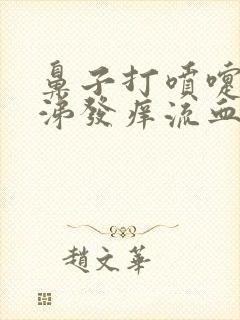 鼻子打噴嚏
涕發痒流血
趙文華